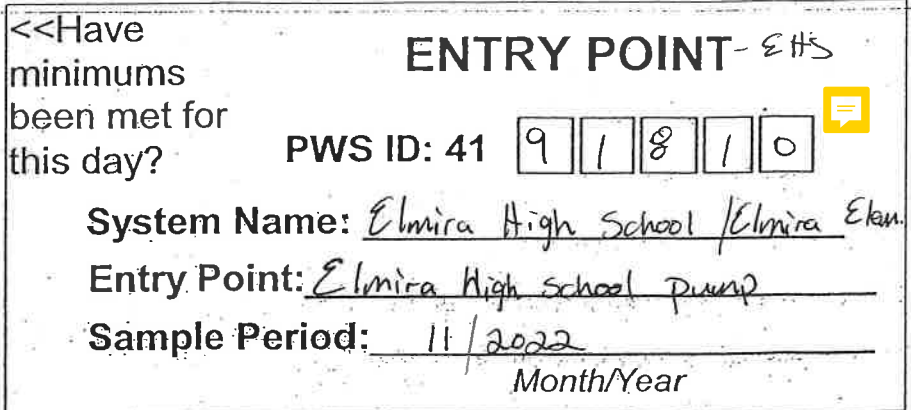 <<Have
minimums
been met for
this day?
ENTRY POINT - EHS
PWS ID: 41 9 1 8 1 0
System Name: Elmira High School / Elmira Elem.
Entry Point: Elmira High School pump
Sample Period: 11/2022
Month/Year